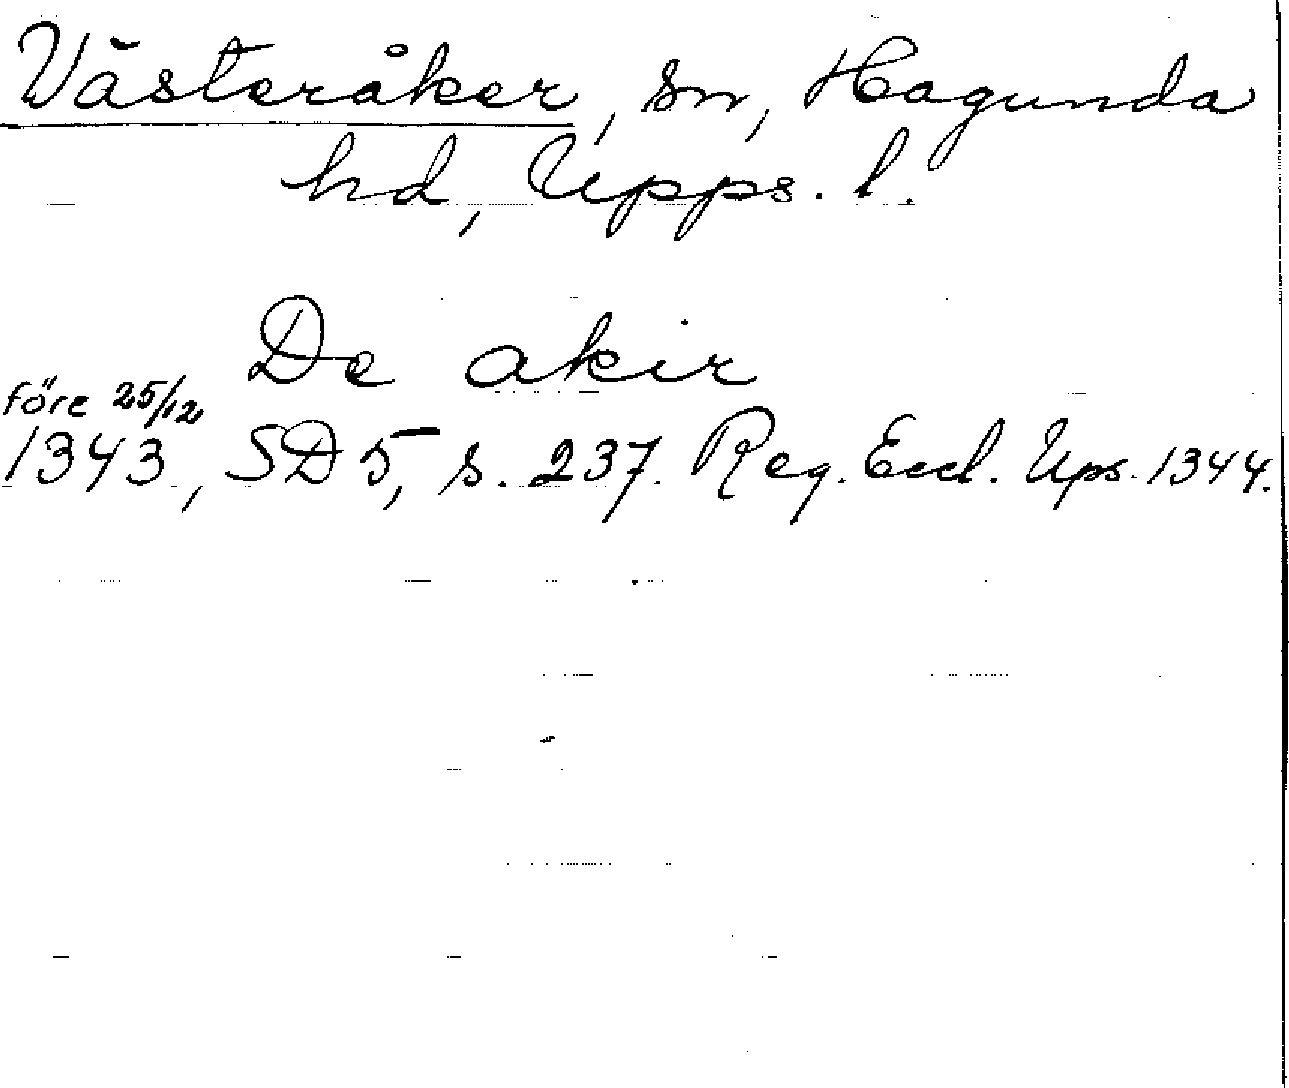 Västeråker, sn, Hagunda
hd, Upps. l.
De akir
före 25/12
1343, SD 5, s. 237. Reg. Eccl. Ups. 1344.